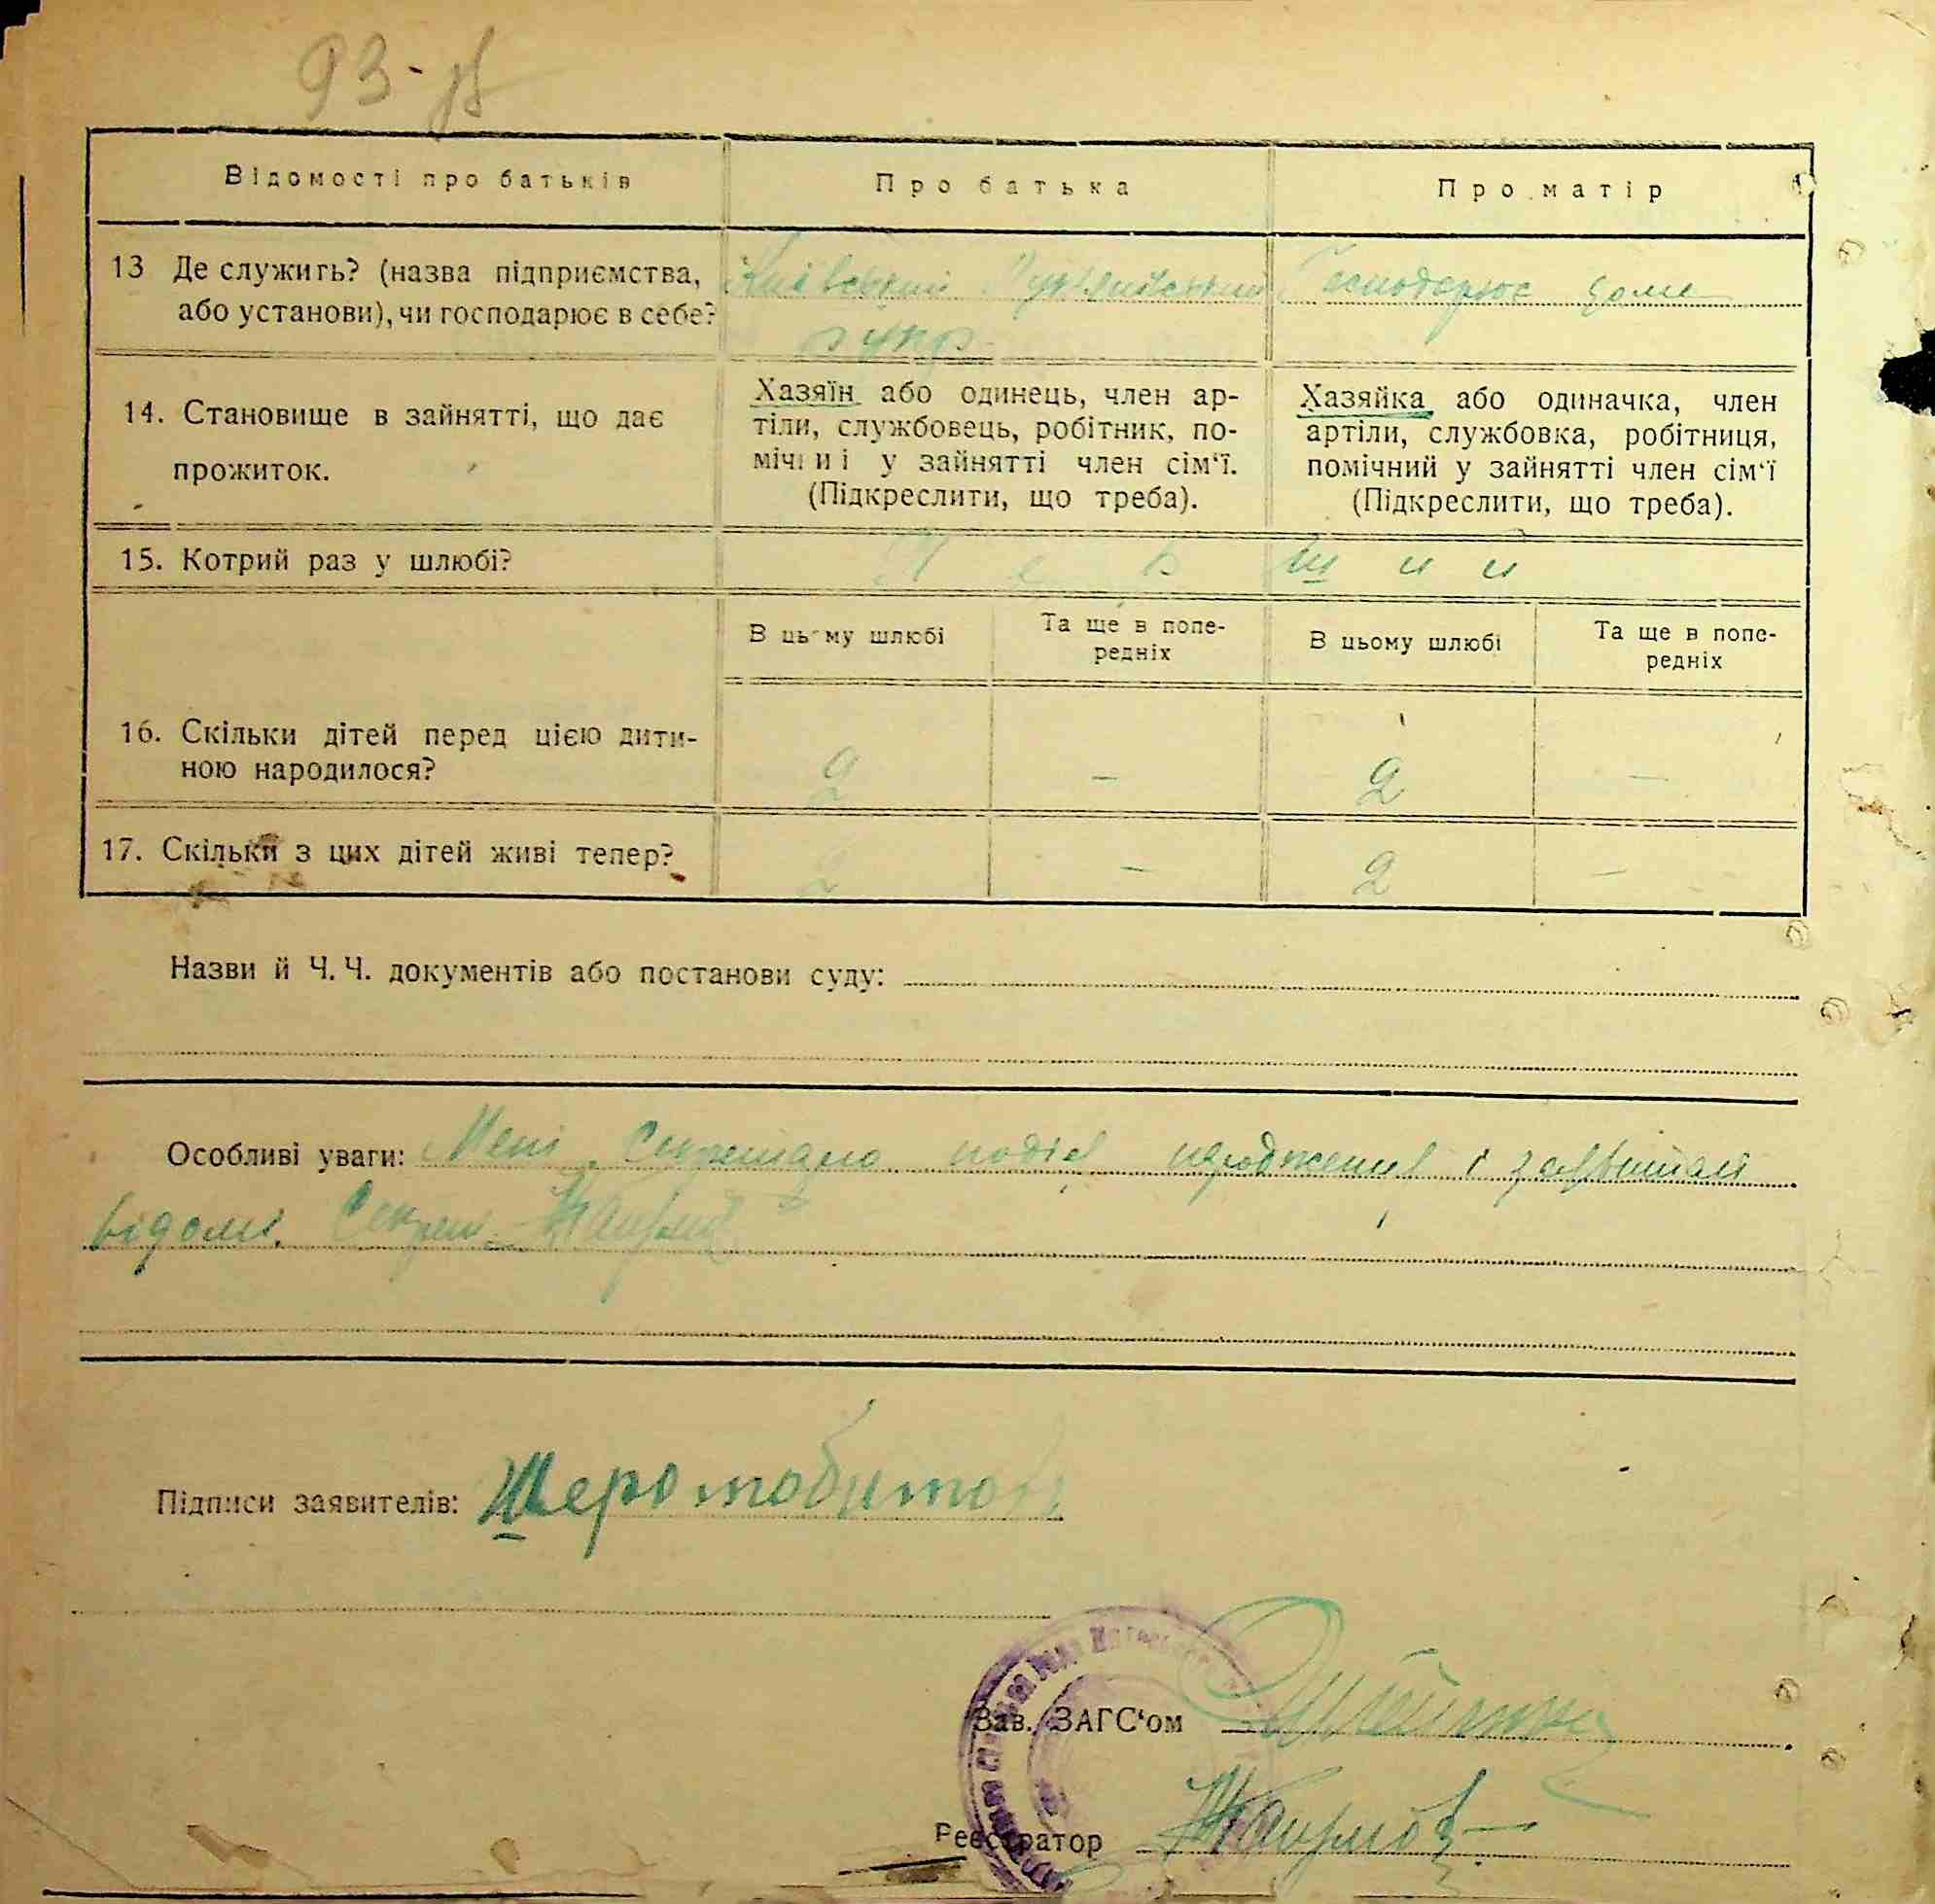 93-
Відомості про батьків
Про батька
Про матір
13 Де служить? (назва підприємства,
або установи), чи господарює в себе?
Київський
Господарює дома
14. Становище в зайнятті, що дає
прожиток.
Хазяїн або одинець, член ар-
тіли, службовець, робітник, по-
мічний у зайнятті член сім‘ї.
(Підкреслити, що треба).
Хазяйка або одиначка, член
артіли, службовка, робітниця,
помічний у зайнятті член сім‘ї
(Підкреслити, що треба).
15. Котрий раз у шлюбі?
В цьому шлюбі
Та ще в попе-
редніх
В цьому шлюбі
Та ще в попе-
редніх
16. Скільки дітей перед цією дити-
ною народилося?
2 – 2 –
17. Скільки з цих дітей живі тепер?
2 – 2 –
Назви й Ч. Ч. документів або постанови суду:
Особливі уваги: Мені секретарю подія народження і
відомі. Секрет.
Підписи заявителів:
Зав. ЗАГС‘ом
Реєстратор